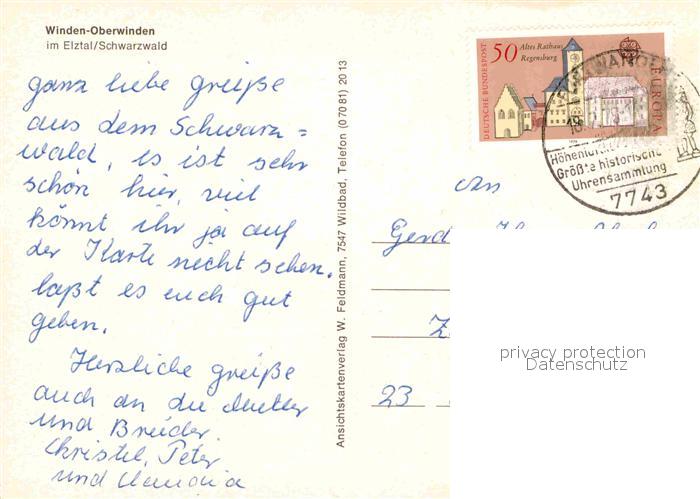 Winden-Oberwinden
im Elztal/Schwarzwald
ganz liebe greiße
aus dem Schwarz=
wald, es ist sehr
schön hier, viel
könnt ihr ja auf
der Karte nicht sehen.
laßt es euch gut
gehen.
Herzliche greiße
auch an die Mutter
und Brüder
Christel, Peter
und Claudia
Ansichtskartenverlag W. Feldmann, 7547 Wildbad, Telefon (0 70 81) 20 13
DEUTSCHE BUNDESPOST
50 Altes Rathaus
Regensburg
EUROPA
FURTWANGEN
18.
Höhenluft
Größte historische
Uhrensammlung
7743
An
Gerd
Z
23
privacy protection
Datenschutz